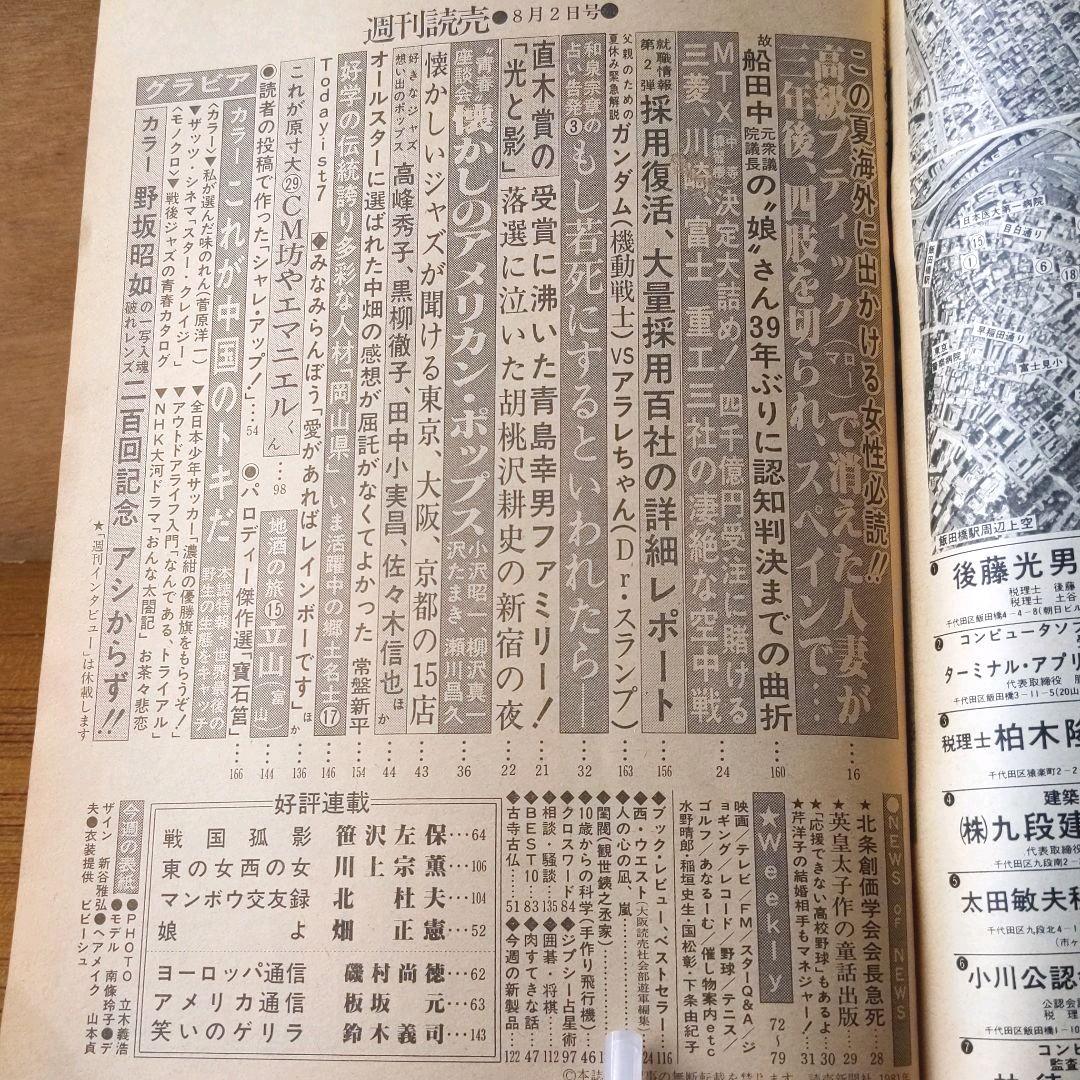 週刊読売●8月2日号●
この夏海外に出かける女性必読!!
高級ブティック(マロー)で消えた人妻が
三年後、四肢を切られ、スペインで…16
故船田中元衆議院議長の"娘"さん39年ぶりに認知判決までの曲折…160
MTX(中等練習機)決定大詰め!四千億円受注に賭ける
三菱、川崎、富士重工三社の凄絶な空中戦…24
就職情報第2弾 採用復活、大量採用百社の詳細レポート…156
父親のための夏休み緊急解説 ガンダム(機動戦士)VSアラレちゃん(Dr・スランプ)…163
和泉宗章の占い告発③もし若死にするといわれたら…32
直木賞の「光と影」
受賞に沸いた青島幸男ファミリー!…21
落選に泣いた胡桃沢耕史の新宿の夜…22
"青春"座談会 懐かしのアメリカン・ポップス 小沢昭一 柳沢真一 沢たまき 瀬川昌久…36
懐かしいジャズが聞ける東京、大阪、京都の15店…43
好きなジャズ想い出のポップス 高峰秀子、黒柳徹子、田中小実昌、佐々木信也ほか…44
オールスターに選ばれた中畑の感想が屈託がなくてよかった 常盤新平…154
好学の伝統誇り多彩な人材「岡山県」いま活躍中の郷土名士⑰…146
Todayist7 ◆みなみらんぼう「愛があればレインボーです」ほか…136
これが原寸大㉙CM坊やエマニエルくん…98
地酒の旅⑮立山(富山)…144
●読者の投稿で作った「シャレ・アップ!」…54
●パロディー傑作選「寶石筥」…166
グラビア
カラー これが中国のトキだ 本誌特報・世界最後の野生の生態をキャッチ
〈カラー〉▼私が選んだ味のれん(菅原洋一)
▼ザッツ・シネマスター・クレイジー」
〈モノクロ〉▼戦後ジャズの青春カタログ
▼全日本少年サッカー「濃紺の優勝旗をもらうぞ!」
▼アウトドアライフ入門「なんである、トライアル」
▼NHK大河ドラマ「おんな太閤記」お茶々悲恋
カラー 野坂昭如の一写入魂破れレンズ 二百回記念 アシからず!!
★「週刊インタビュー」は休載します
●NEWS OF NEWS
★北条創価学会会長急死…28
★英皇太子作の童話出版…29
★「応援できない高校野球」もあるよ…30
★芹洋子の結婚相手もマネジャー!…31
★Weekly
72〜79
映画/テレビ/FM/スターQ&A/ジョギング/レコード/野球/テニス/ゴルフ/あなるーむ 催し物案内etc
水野晴郎・稲垣史生・国松彰・下条由紀子
ブック・レビュー、ベストセラー…116
西・ウエスト(大阪読売社会部遊軍編集)…124
人の心の凪、嵐
閨閥(観世銕之丞家)
10歳からの科学(手作り飛行機)…46
クロスワード…84
●ジプシー占星術…97
相談・騒談…135
●囲碁・将棋…112
BEST10…83
●肉すてきな話…47
古寺古仏…51
●今週の新製品…122
好評連載
戦国孤影 笹沢左保…64
東の女西の女 川上宗薫…106
マンボウ交友録 北杜夫…104
娘よ 畑正憲…52
ヨーロッパ通信 磯村尚徳…62
アメリカ通信 板坂元…63
笑いのゲリラ 鈴木義司…143
今週の表紙
●PHOTO 立木義浩
●モデル 南條玲子●デザイン 新谷雅弘●ヘアメイク 山本貞夫●衣装提供 ビビーシュ
読売新聞社 1981年
日本医大第一病院
目白通り
早稲田通り
富士見小
飯田橋駅周辺上空
❶
後藤光男
税理士 後藤
税理士 土谷
千代田区飯田橋4-4-8(朝日ビル
❷
コンピュータソフ
ターミナル・アプリ
代表取締役
千代田区飯田橋3-11-5(20山
❸
税理士 柏木隆
千代田区猿楽町2-2
❹
建築
(株)九段建
代表取締役
千代田区九段南2-
❺
太田敏夫税
千代田区九段北4-1
❻
小川公認会
公認会
税理
千代田区飯田橋1-10
❼
コンピ
監査